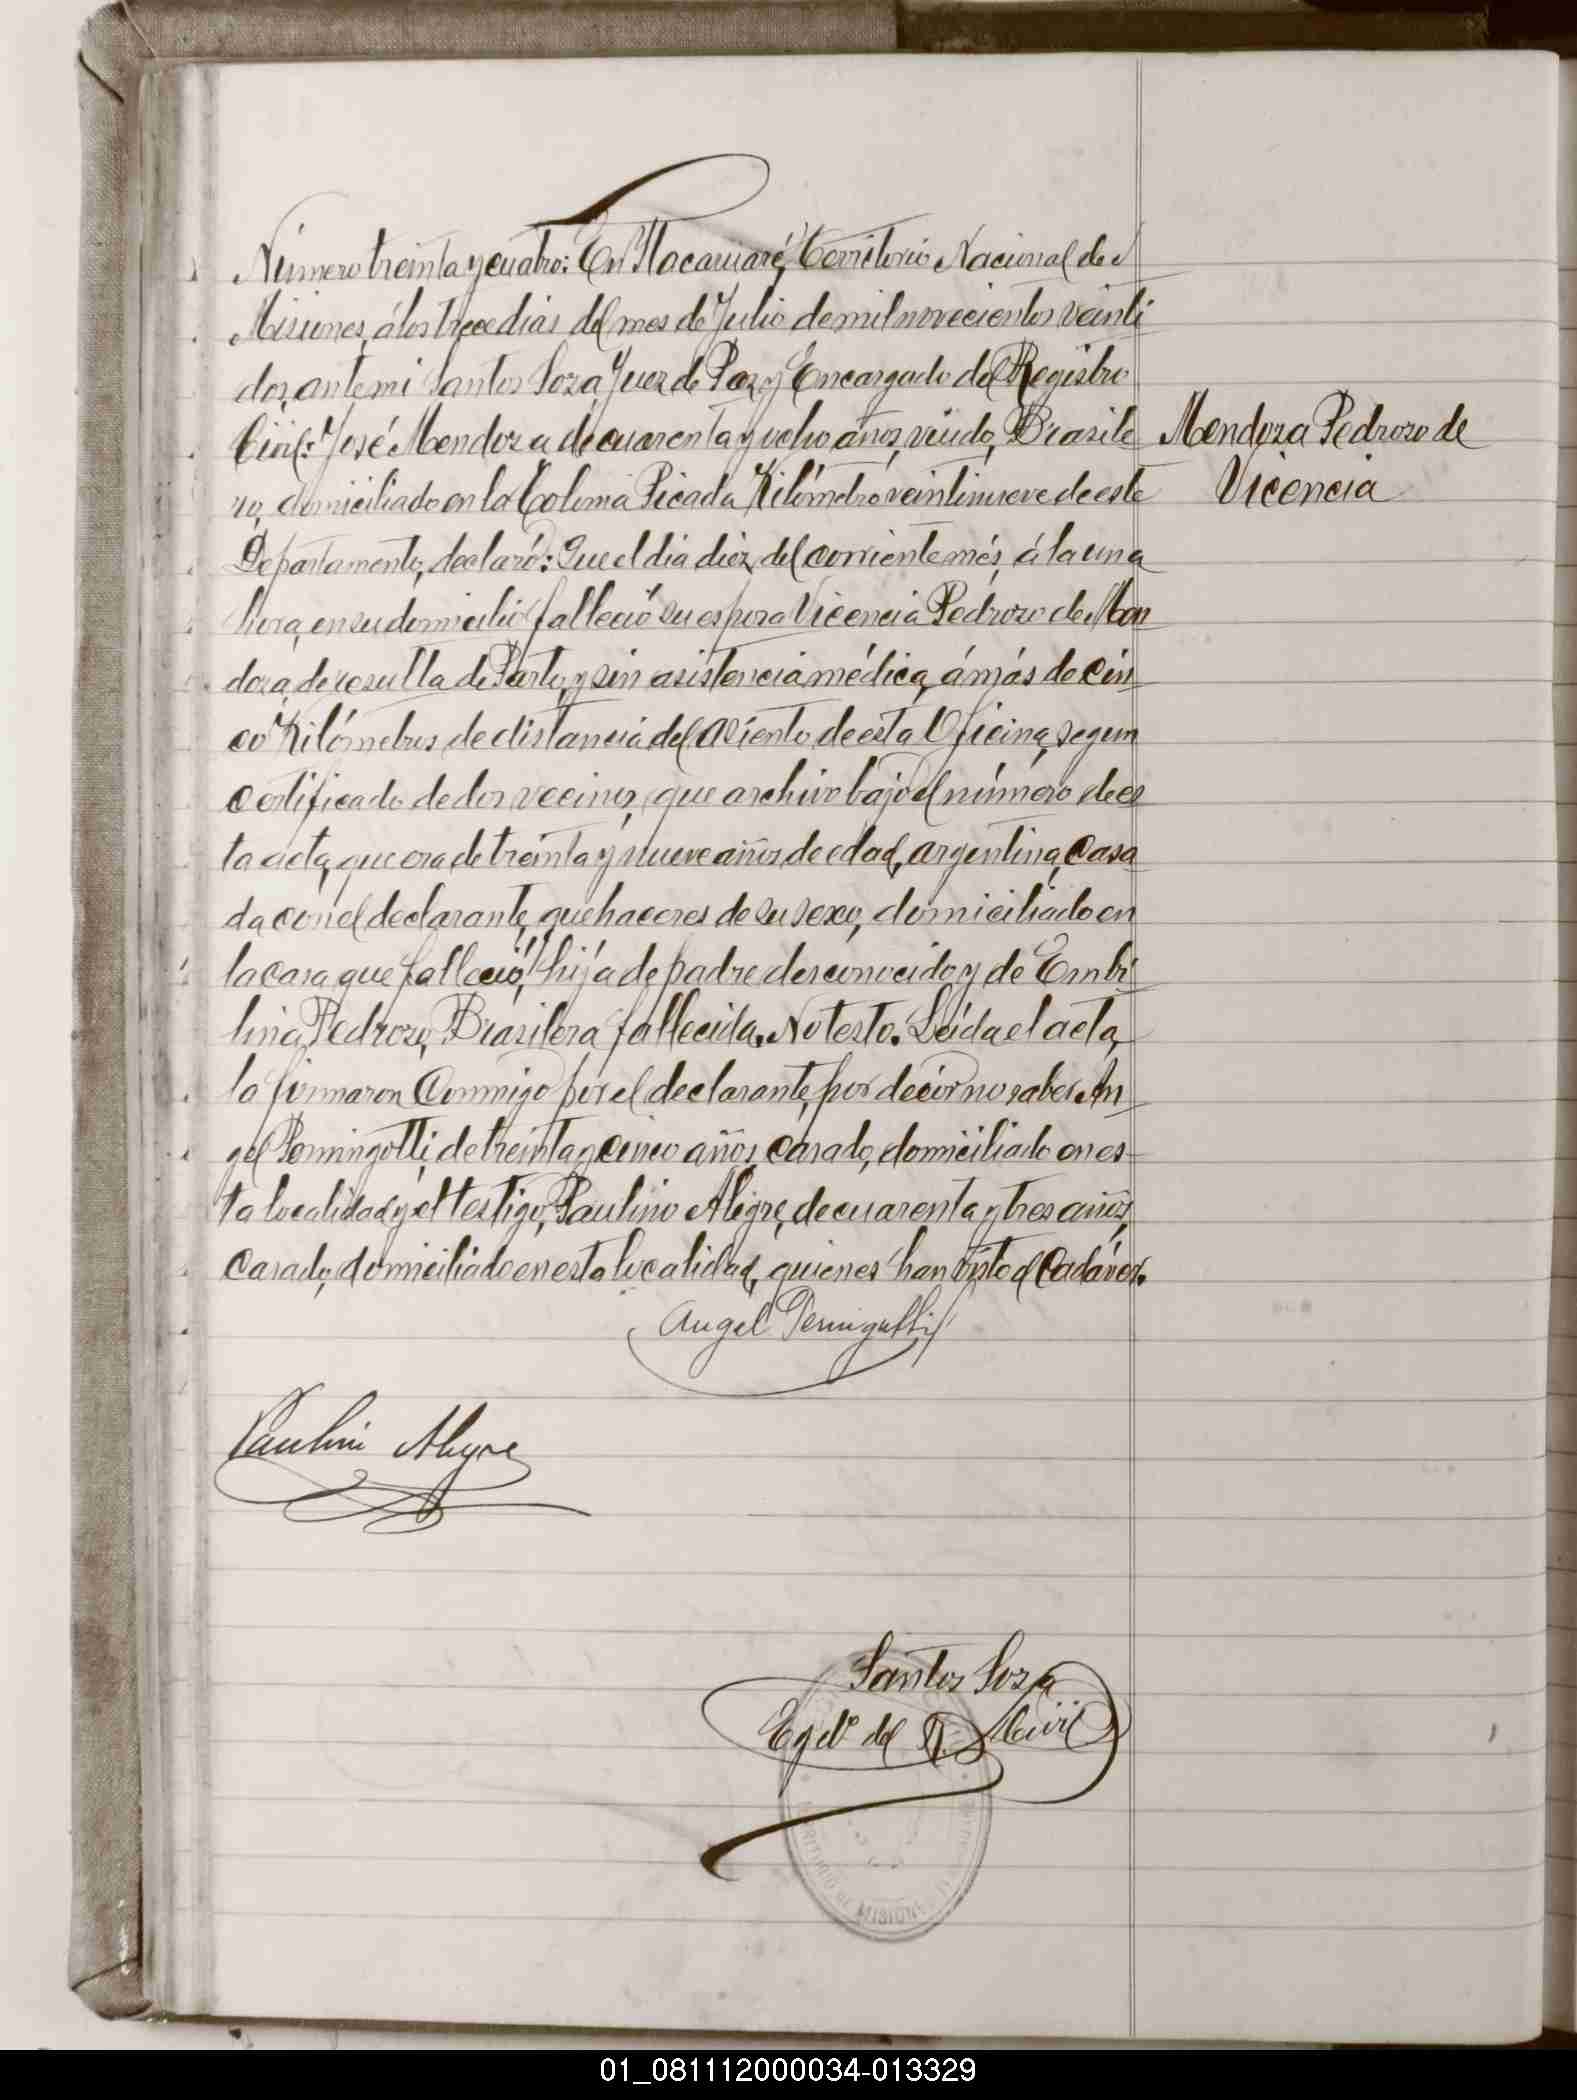 Número treinta y cuatro: En Itacaruaré, Territorio Nacional de
Misiones, á los trece dias del mes de Julio de mil novecientos veinti
dos, ante mi Santos Soza, Juez de Paz y Encargado del Registro
Civil: José Mendoza de cuarenta y ocho años, viudo, Brasile
ro, domiciliado en la Colonia Picada Kilómetro veintinueve de este
Departamento, declaró: Que el dia diez del corriente més, á la una
hora, en su domicilio falleció su esposa Vicencia Pedrozo de Men
doza, de resulta de Parto, y sin asistencia médica, á más de cin
co Kilómetros de distancia del asiento de esta Oficina, segun
certificado de dos vecinos, que archivo bajo el número de es
ta acta, que era de treinta y nueve años de edad, argentina, casa
da con el declarante, quehaceres de su sexo, domiciliado en
la casa que falleció, hija de padre desconocido y de Embi
lina Pedrozo, Brasilera fallecida. No testo. Leída el acta,
la firmaron Conmigo por el declarante, por decir no saber An
gel Perningotti, de treinta y cinco años, casado, domiciliado en es
ta localidad y el testigo, Paulino Alegre, de cuarenta y tres años,
casado, domiciliado en esta localidad, quienes han visto el cadáver.
Mendoza Pedrozo de
Vicencia
Angel Perningotti
Paulino Alegre
Santos Soza
Egdo del R. Civil
TERRITORIO DE MISIONES
01_081112000034-013329